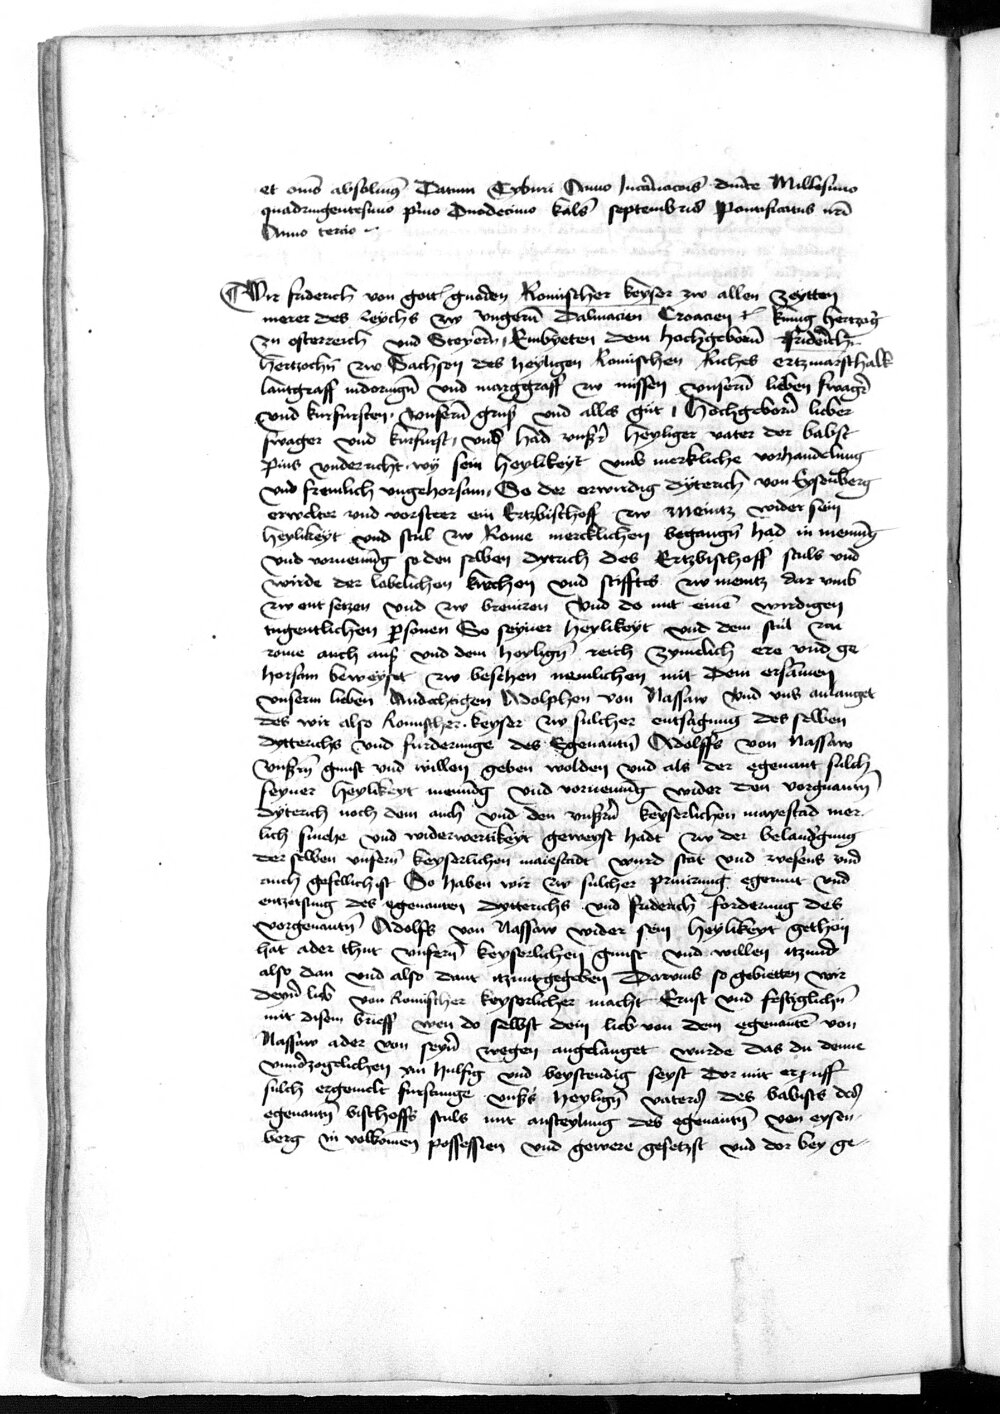 et omĩs absolutiõ Datum Tyburi Anno Incarnacõis dnĩce Millesimo
quadringentesimo primo Duodecimo kalẽ septembris Pontificatus nrĩ
Anno tercio
Wir friderich von gotĩ gnaden Romischer keyser zw allen zeytten
merer des Reychs zw ungerñ Dalmacien Croacien kunig hertzog
zu osterreich und Steyerñ Embyeten dem hochgebornñ friderich
hertzochñ zw Sachsen des heyligen Romischen Riches ertzmarschalk
lantgraff in doringñ und marggraff zw missen unserñ lieben swagr̃
und kurfursten unserñ grus und alles gut hochgebornr̃ lieber
swager und kurfurst und had unßr̃ heyliger vater der babst
pius underricht wy sein heylikeyt umb merkliche vorhandelung
und fremlich ungehorsam So der erwirdig dyterich von Eysenberg
erwelter und vorsteer ein Ertzbischoff zw Meintz wider sein
heylikeyt und stul zw Rome mercklichen begangñ had in menung
und vornemung so den selben dytrich des Ertzbischoff stuls und
wirde der lobelichen kirchen und stifftes zw mentz dar umb
zw ent setzen und zw breniren und do mit einẽ wirdigen
tugentlichen psonen So seyner heylikeyt und dem stul zw
rome auch auß und dem heyligñ reich zymelich ere und ge
horsam beweyset zw besehen nemlichen mit dem ersamen
unserm lieben Andechtigen Adolphen von Nassaw und uns anlanget
des wir also Romischer keyser zw sulcher entsagung des selben
dytterichs und furderunge des Egenantñ Adolffs von Nassaw
unßrñ gunst und willen geben wolden und als der egenant sulch
seyner heylikeyt menung und vornemung wider den vorgnantñ
dyterich noch dem auch und den unßrñ keyserlichen mayestad mer
lich smehe und widerwertikeyt geweyst hadt zw der belandgung
der selben unserñ keyserlichen maiestadt wurd stat und wesens und
auch gesellich ist So haben wir zw sulcher priuirung egenant und
entzetzung des egenanten dytterichs und friderich forderung des
vorgenantñ Adolffs von Nassaw wider sein heylikeyt gethon
hat ader thut unserñ keyserlichen gunst und willen itzund
also dan und also dant itzunt gegeben Darumb so gebietten wir
deynr̃ lieb von Romischer keyserlicher macht Ernst und festiglichñ
mit disem brieff wen do selbst dein lieb von dem egenantẽ von
Nassaw ader von seynr̃ wegen angelanget wurde das du denne
unuerzogelichen ym hulfig und beystendig seyst Dor mit er uff
sulch ergemelt fursunge unßrs heyligñ vaters des babists des
egenantñ bischoffs stuls mit austeylung des egenantñ von eysen
berg in volkomen possessien und gewere gesetzst und dor bey ge